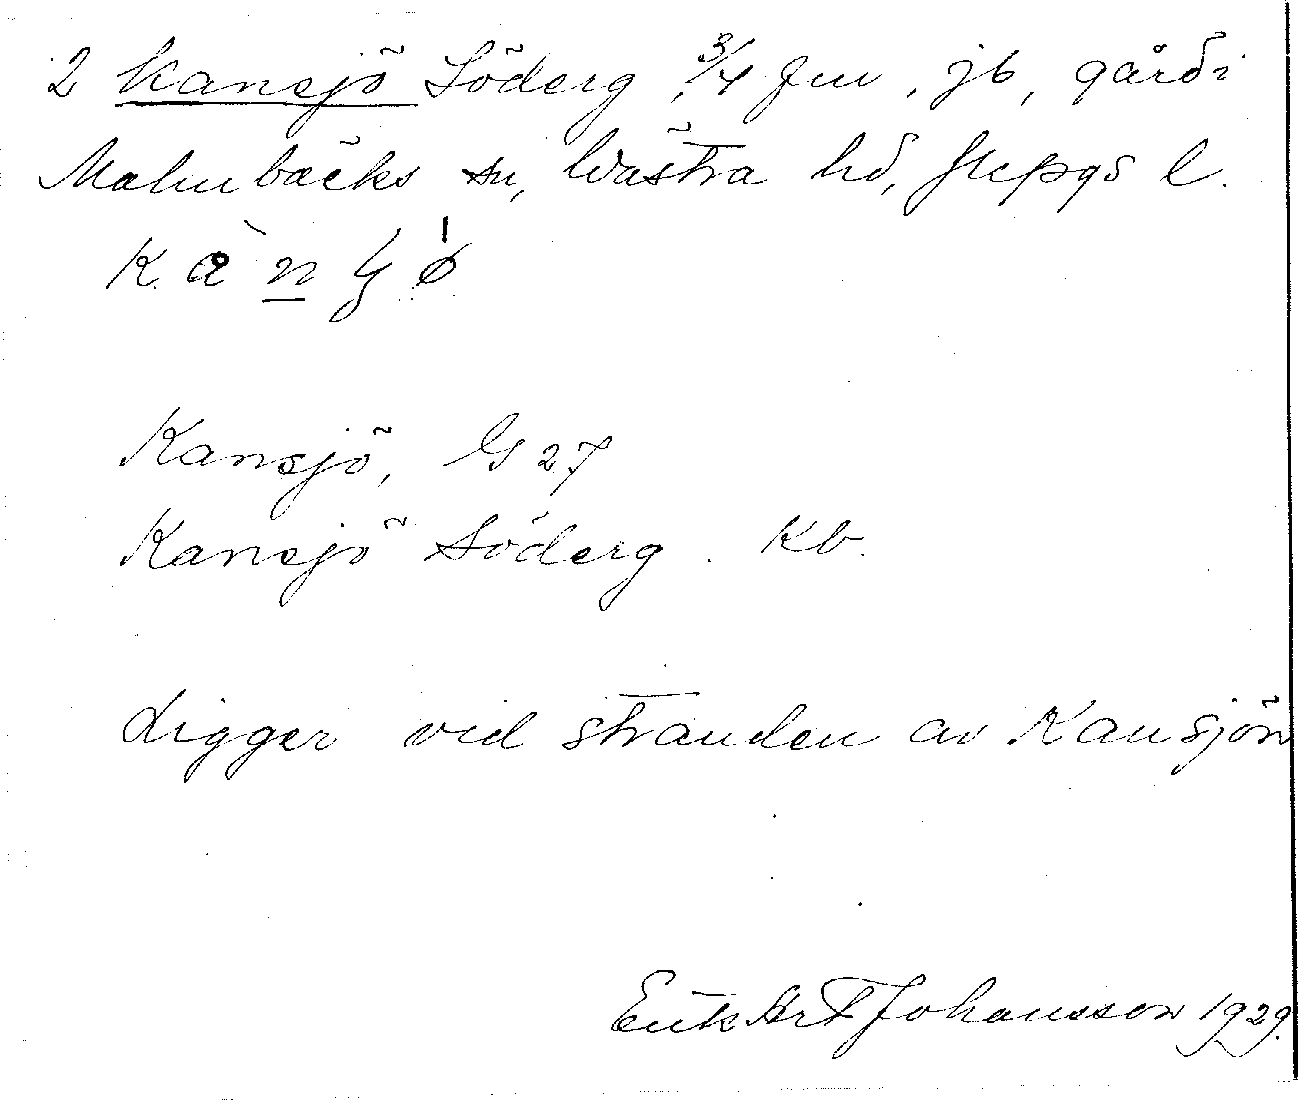 2 Kansjö Söderg, 3/4 fm, jb, gård i
Malmbäcks sn, Västra hd, Jkpgs l.
Kansjö, G 27
Kansjö Söderg. Kb.
Ligger vid stranden av Kansjön
Erik Art Johansson 1929.